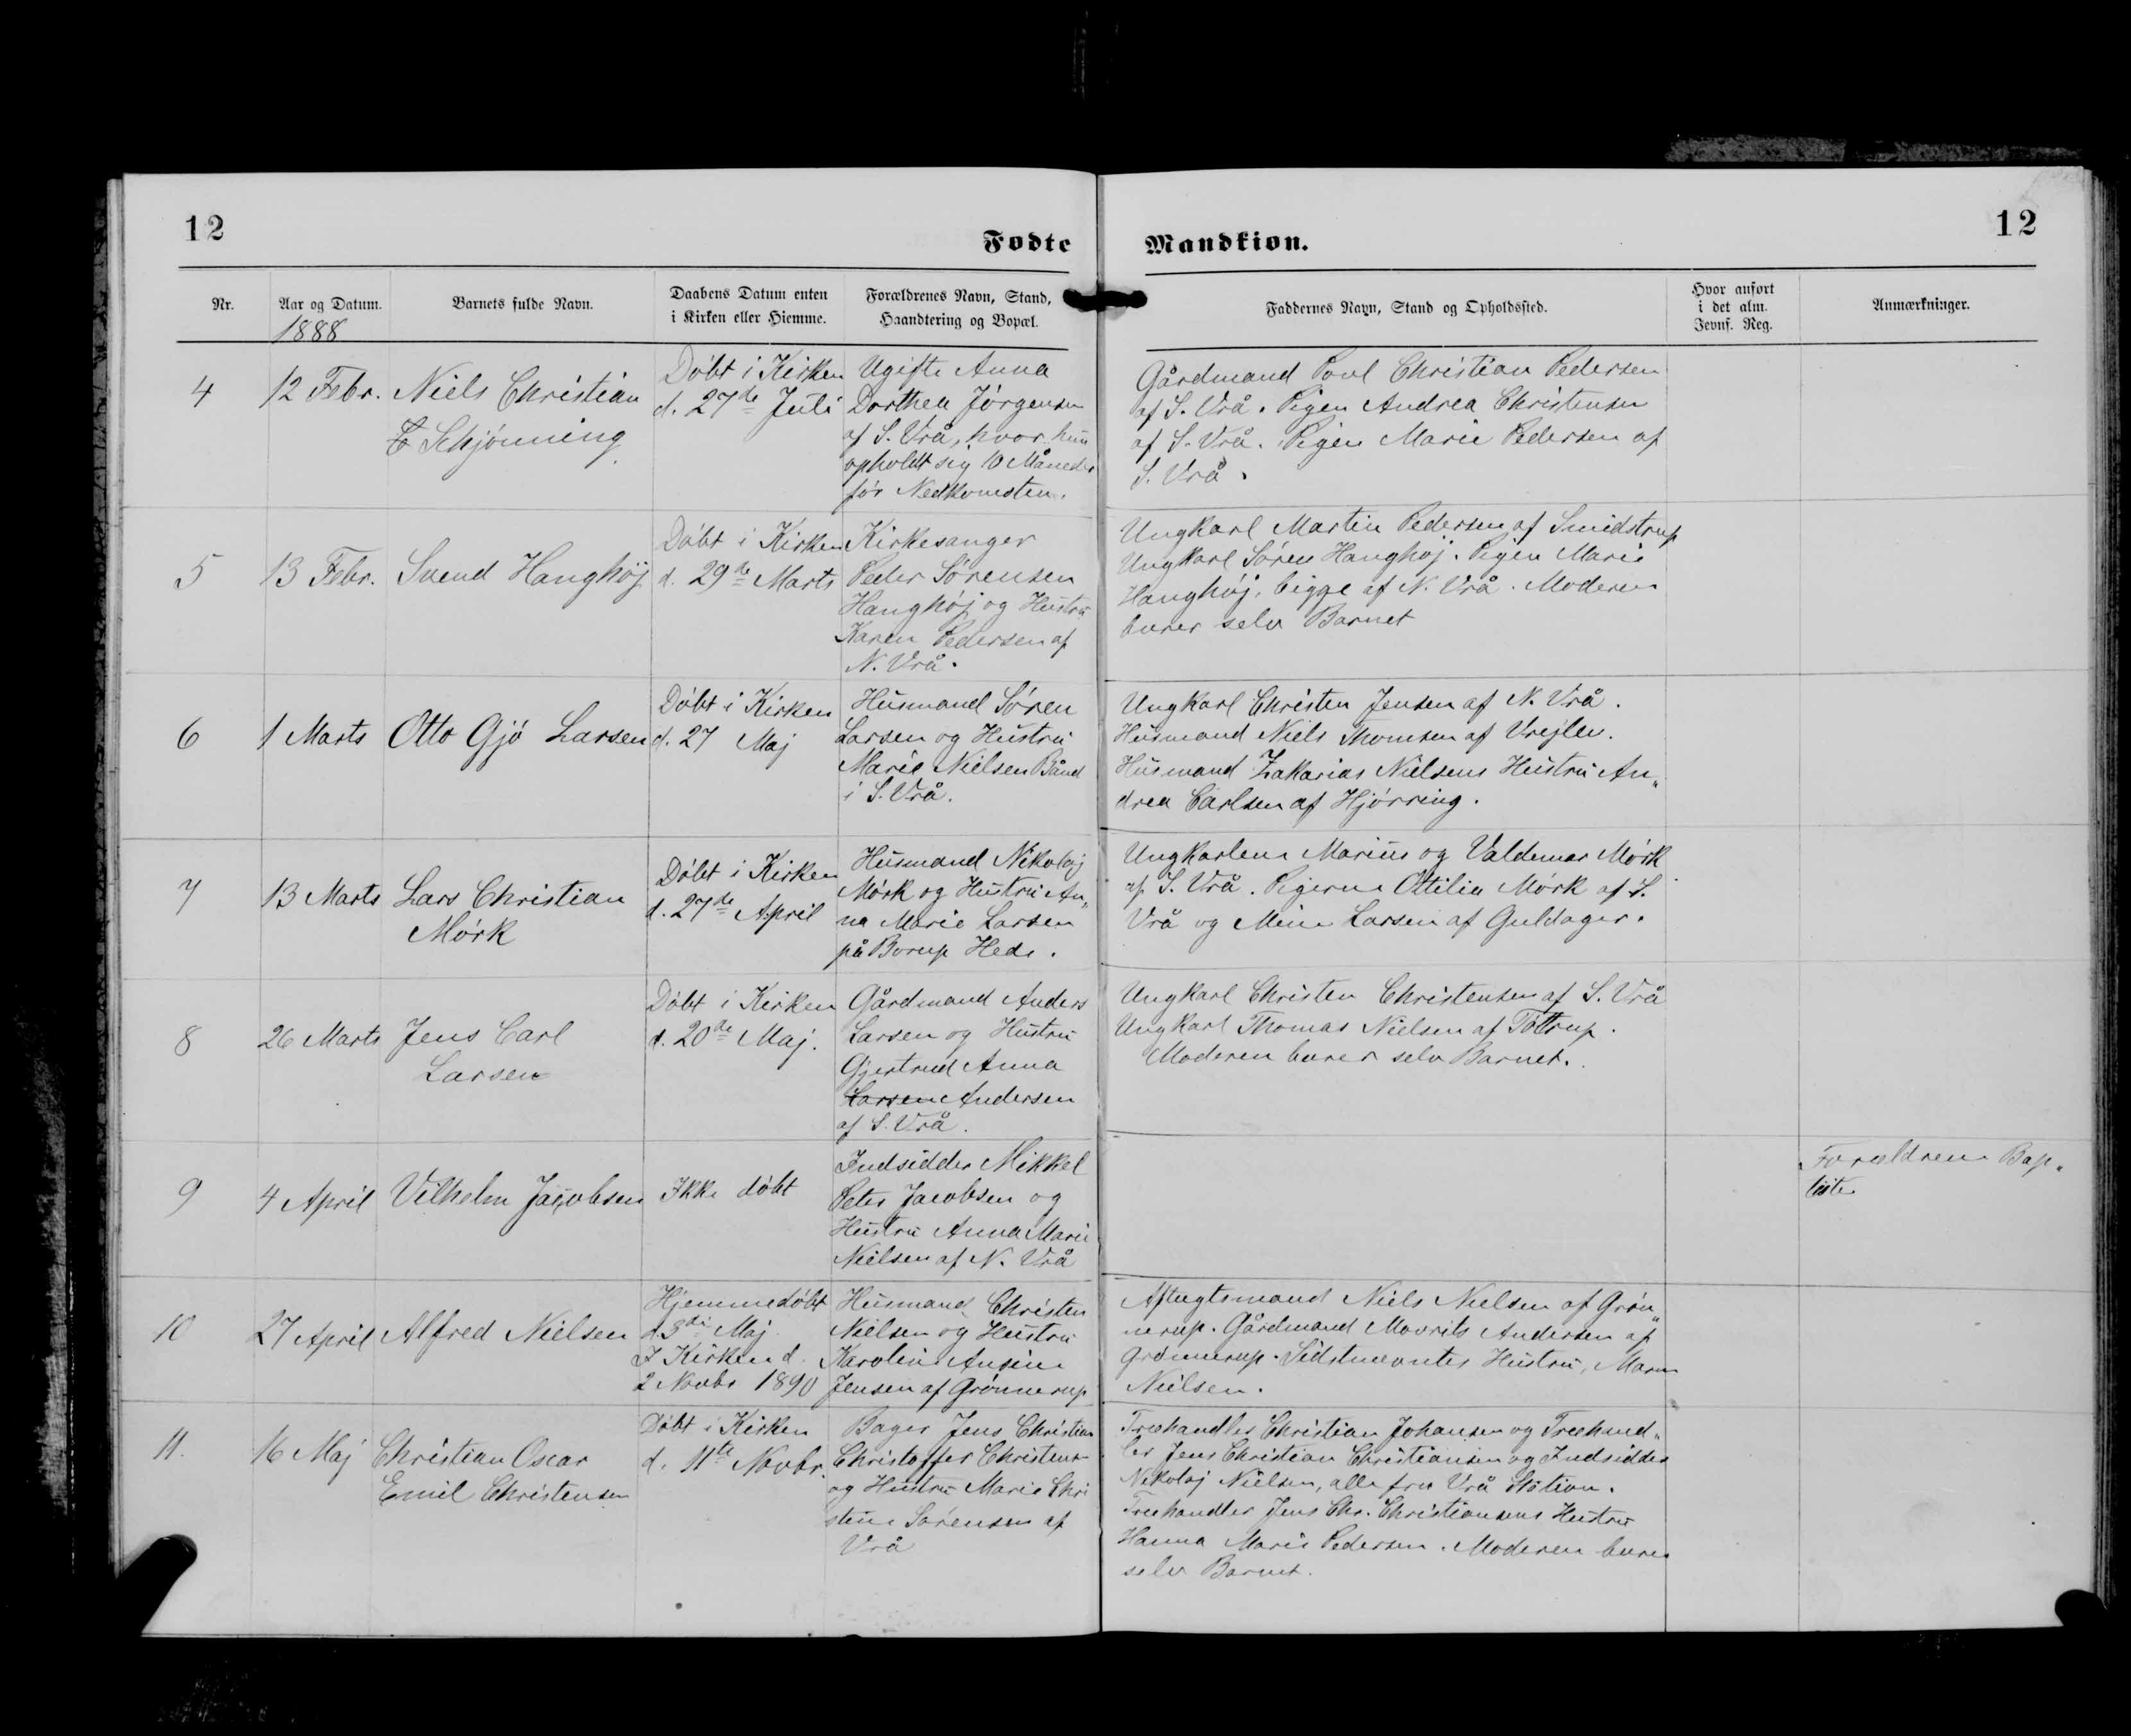 12
Fødte
Mandkiøn.
12
Nr.
Aar og Datum.
1888
Barnets fulde Navn.
Daabens Datum enten
i Kirken eller Hiemme.
Forældrenes Navn, Stand,
Haandtering og Bopæl.
Faddernes Navn, Stand og Opholdssted.
Hvor anført
i det alm.
Jevnf. Reg.
Anmærkninger.
4
12 Febr.
Niels Christian
Schjønning
Døbt i Kirken
d. 27de Juli
Ugifte Anna
Dorthea Jörgensen
af S. Vrå, hvor hun
opholdt sig 10 Måneder
før Nedkomsten.
Gårdmand Poul Christian Pedersen
af S. Vrå. Pigen Andrea Christensen
af S. Vrå. Pigen Marie Pedersen af
S. Vrå.
5
13 Febr.
Svend Hanghøj
Døbt i Kirken
d. 29de Marts
Kirkesanger
Peder Sørensen
Hanghøj og Hustru
Karen Pedersen af
N. Vrå.
Ungkarl Martin Pedersen af Smidstrup
Ungkarl Søren Hanghøj. Pigen Marie
Hanghøj, begge af N. Vrå. Moderen
barer selv Barnet
6
1 Marts
Otto Gjö Larsen
Døbt i Kirken
d. 27 Maj
Husmand Søren
Larsen og Hustru
Marie Nielsen Bånd
i S. Vrå.
Ungkarl Christen Jensen af N. Vrå.
Husmand Niels Thomsen af Vrejlev.
Husmand Zakarias Nielsens Hustru An„
drea Carlsen af Hjørring.
7
13 Marts
Lars Christian
Mørk
Døbt i Kirken
d. 27de April
Husmand Nikolaj
Mørk og Hustru An„
na Marie Larsen
på Borup Hede.
Ungkarlene Marius og Valdemar Mørk
af S. Vrå. Pigerne Ottilia Mørk af S.
Vrå og Mine Larsen af Guldager.
8
26 Marts
Jens Carl
Larsen
Døbt i Kirken
d. 20de Maj.
Gårdmand Anders
Larsen og Hustru
Gjertrud Anna
Larsen Andersen
af S. Vrå.
Ungkarl Christen Christensen af S. Vrå
Ungkarl Thomas Nielsen af Tøttrup.
Moderen barer selv Barnet.
9
4 April
Vilhelm Jacobsen
Ikke døbt
Indsidder Mikkel
Peter Jacobsen og
Hustru Anna Marie
Nielsen af N. Vrå
Forældrene Bap„
tister
10
27 April
Alfred Nielsen
Hjemmedøbt
d. 3di Maj
I Kirken d.
2 Novbr 1890
Husmand Christen
Nielsen og Hustru
Karoline Ansine
Jensen af Grønnerup
Aftægtsmand Niels Nielsen af Grøn„
nerup. Gårdmand Mourits Andersen af
Grønnerup. Sidstnævntes Hustru, Maren
Nielsen.
11.
16 Maj
Christian Oscar
Emil Christensen
Døbt i Kirken
d. 11te Novbr.
Bager Jens Christian
Christoffer Christensen
og Hustru Marie Chri
stine Sørensen af
Vrå
Træhandler Christian Johansen og Træhand„
ler Jens Christian Christiansen og Indsidder
Nikolaj Nielsen, alle fra Vrå Station.
Træhandler Jens Chr. Christiansens Hustru
Hanna Marie Pedersen. Moderen barer
selv Barnet.